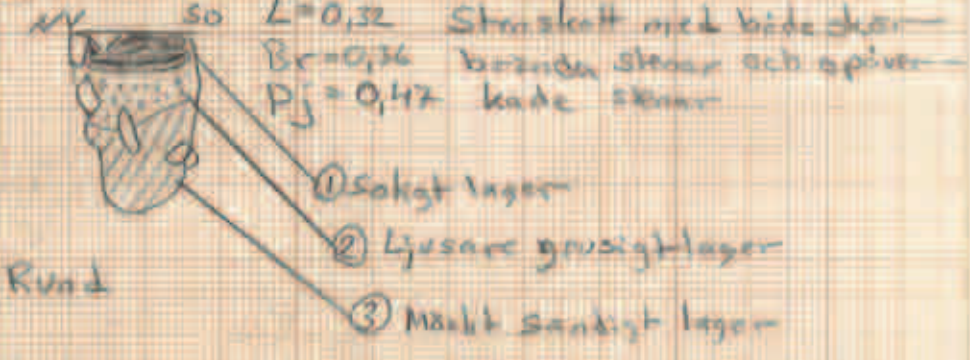 NV SO L=0,32 Stenskott med både skör-
Br=0,36 brända stenar och opåver-
Dj=0,47 kade stenar
① Sotigt lager
② Ljusare grusigt lager
Rund
③ Mörkt sandigt lager